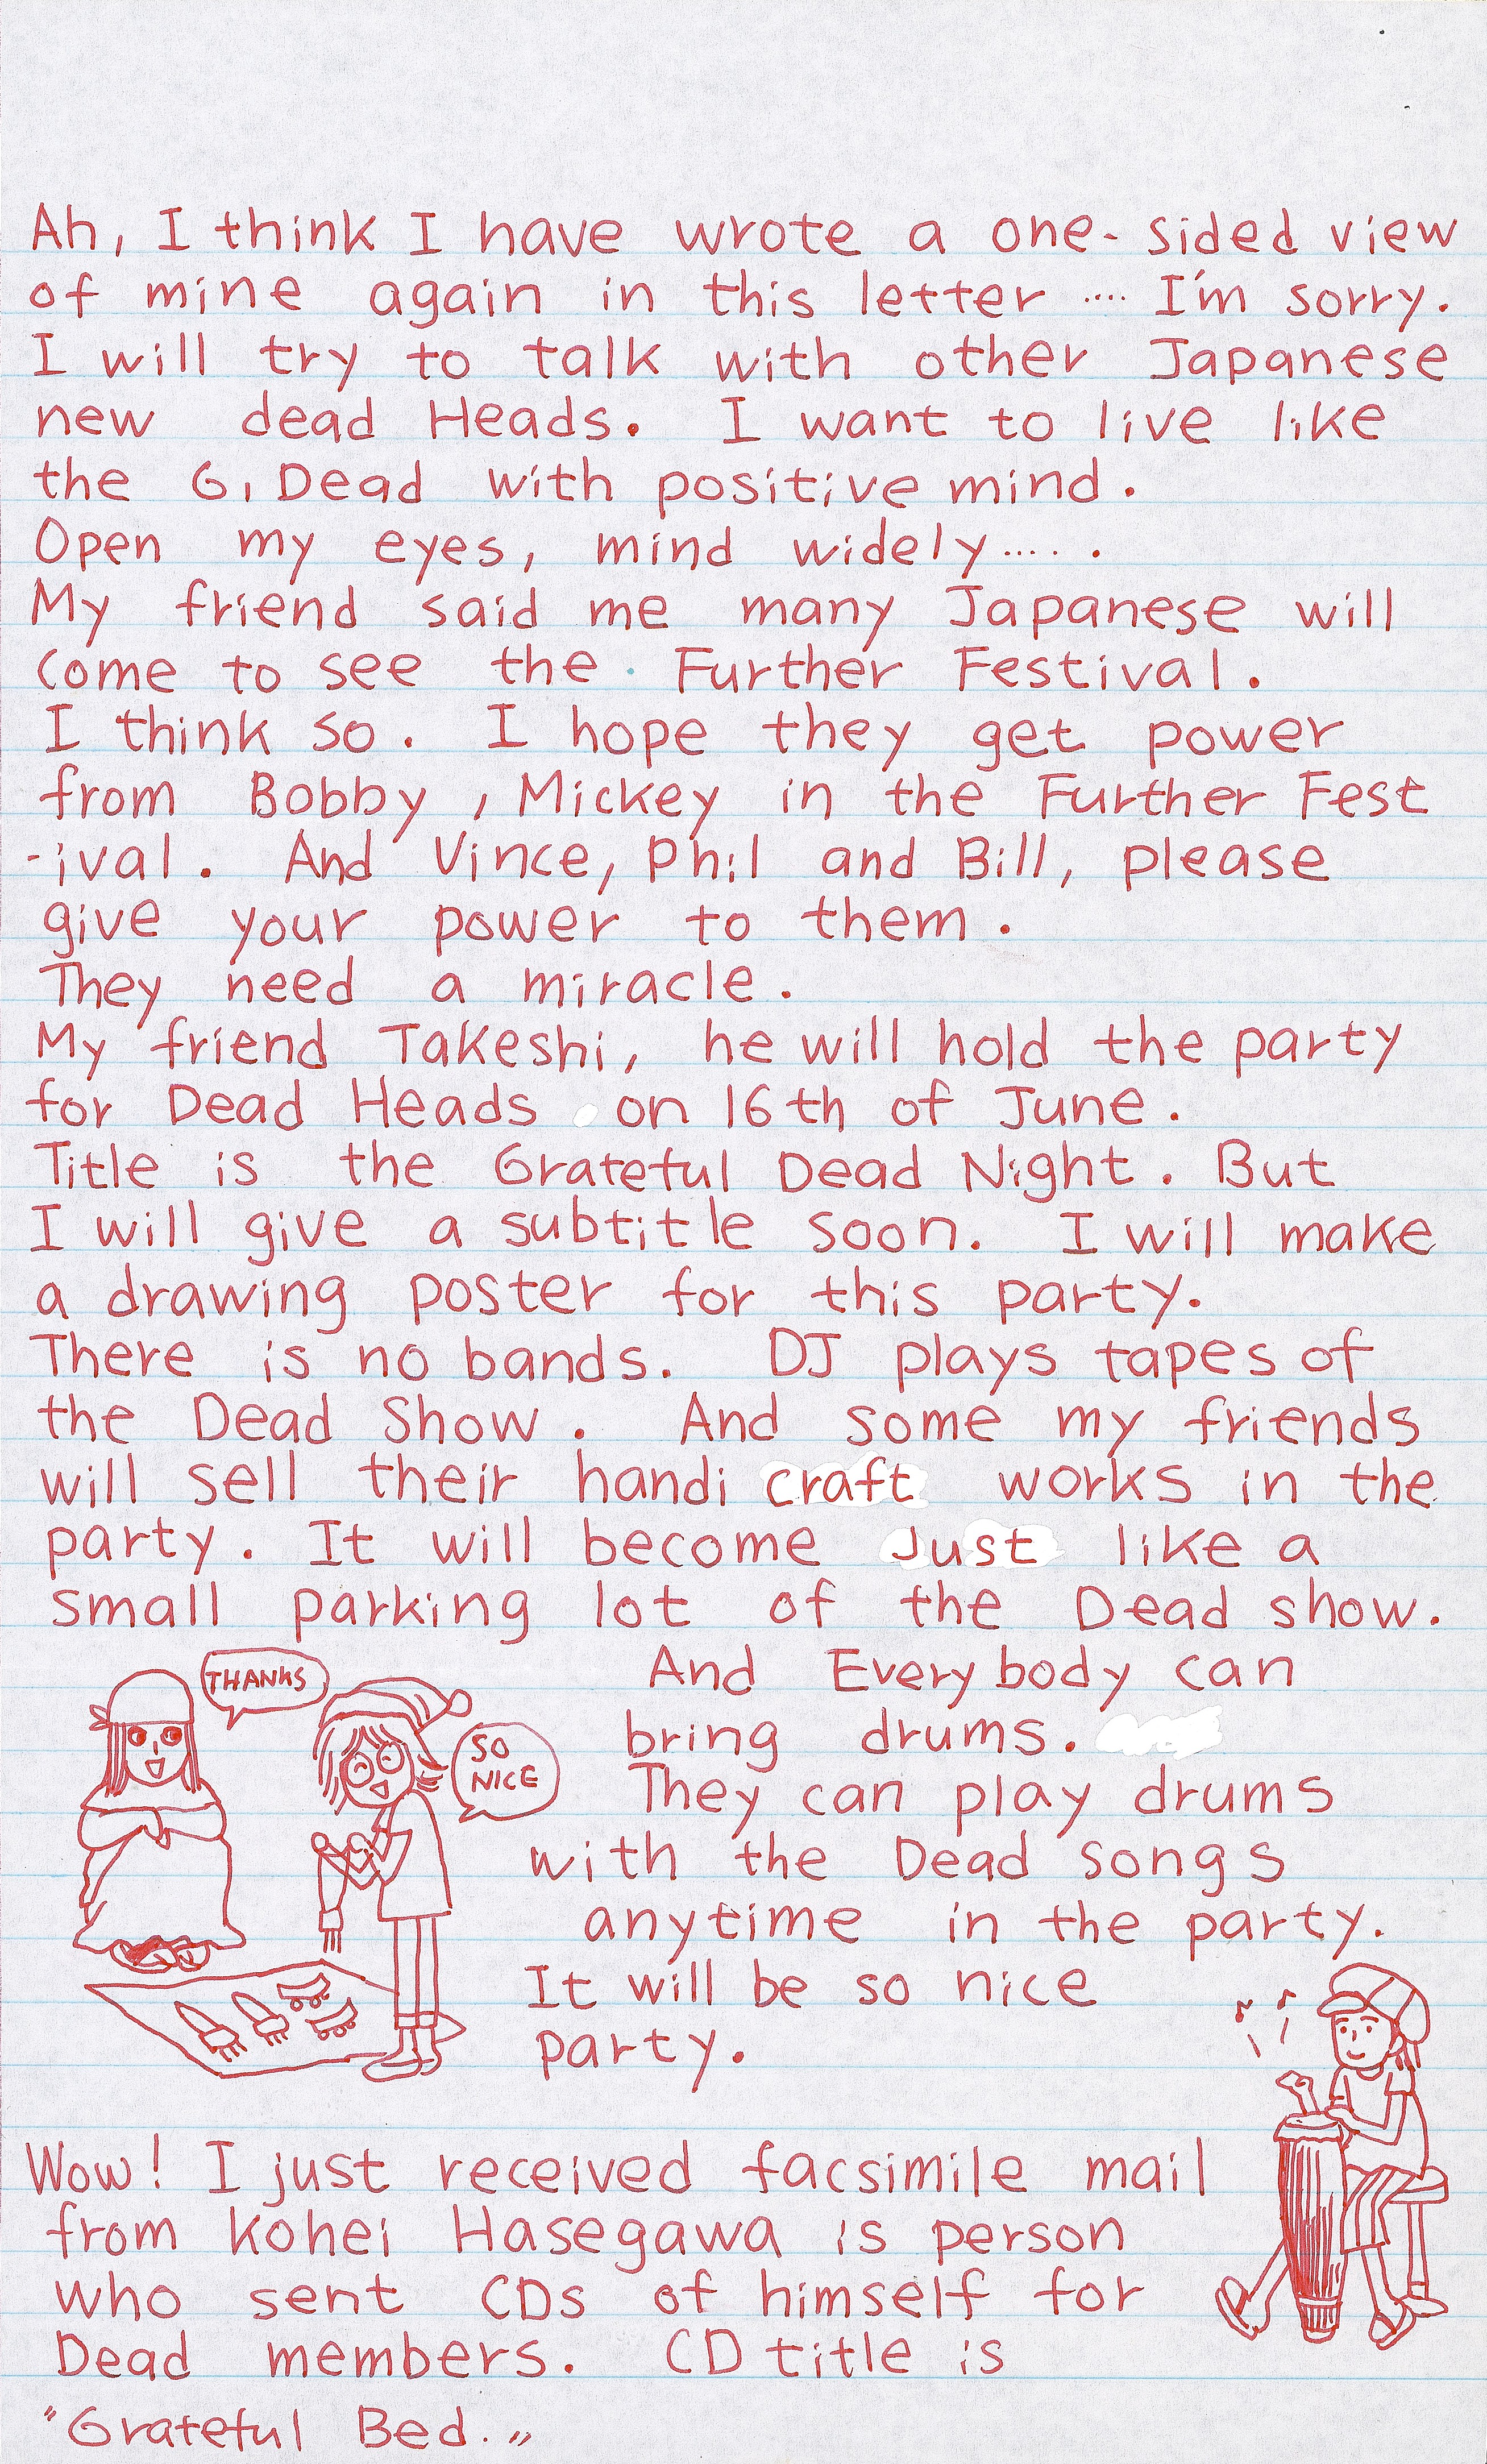 Ah, I think I have wrote a one-sided view
of mine again in this letter .... I'm sorry.
I will try to talk with other Japanese
new dead Heads. I want to live like
the G, Dead with positive mind.
Open my eyes, mind widely.... .
My friend said me many Japanese will
come to see the Further Festival.
I think so. I hope they get power
from Bobby, Mickey in the Further Fest
-ival. And Vince, Phil and Bill, please
give your power to them.
They need a miracle.
My friend Takeshi, he will hold the party
for Dead Heads on 16th of June.
Title is the Grateful Dead Night. But
I will give a subtitle soon. I will make
a drawing poster for this party.
There is no bands. DJ plays tapes of
the Dead Show. And some my friends
will sell their handi craft works in the
party. It will become Just like a
small parking lot of the Dead show.
THANKS
SO
NICE
And Everybody can
bring drums.
They can play drums
with the Dead songs
anytime in the party.
It will be so nice
party.
Wow! I just received facsimile mail
from Kohei Hasegawa is person
who sent CDs of himself for
Dead members. CD title is
"Grateful Bed."